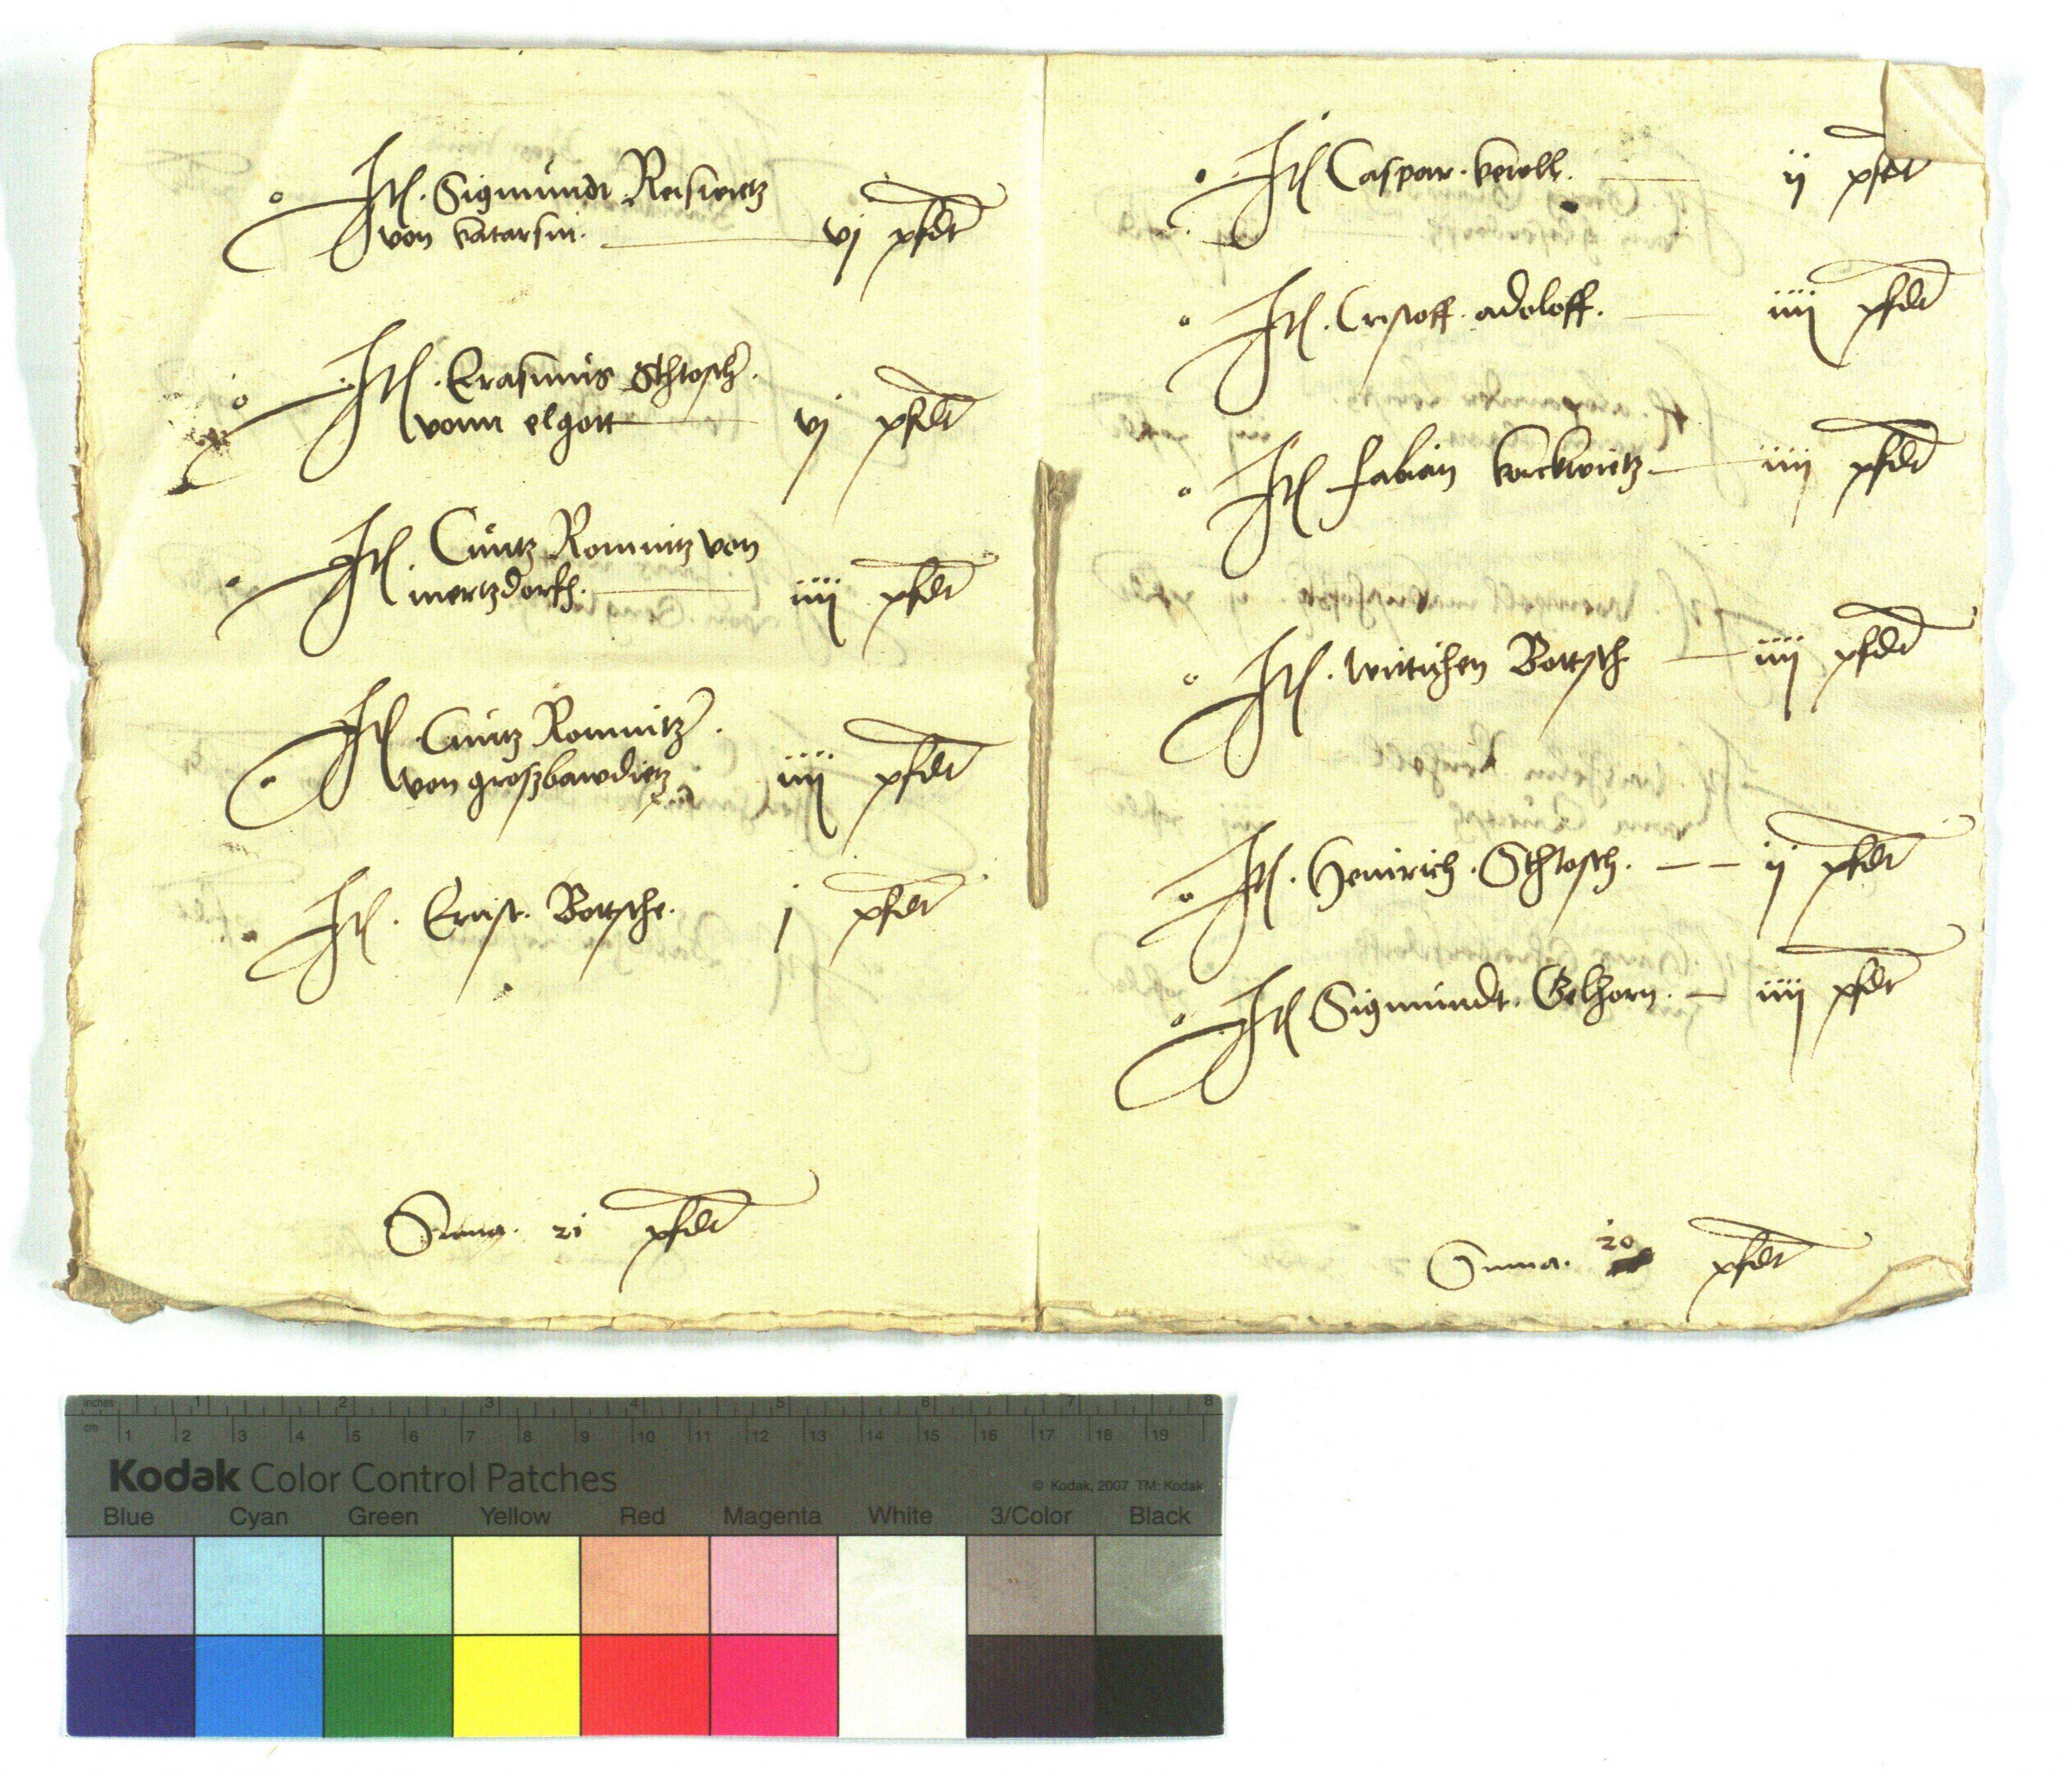 Itl. Sigmundt Reiswitz
von katarsin. vj pferdt
Itl. Erasmus Schtosch
vonn elgott vj pferdt
Itl. Cuntz Romnitz von
mertzdorff. iiij pferdt
Itl Cuntz Romnitz.
von groszbawdietz iiij pferdt
Itl. Ernst. Bottsche. j pferdt
Suma. 21 pferdt
Itl Caspar. ij pferdt
Itl. Cristoff. adoloff. iiij pferdt
Itl fabian kockwitz iiij pferdt
Itl. wittichen Bottsch iiij pferdt
Itl. Heinrich. Schtosch. ij pferdt
Itl Sigmundt. Gelhorn. iiij pferdt
Suma. 20 pferdt
inches 1 2 3 4 5 6 7 8
cm 1 2 3 4 5 6 7 8 9 10 11 12 13 14 15 16 17 18 19
Kodak Color Control Patches © Kodak, 2007 TM: Kodak
Blue Cyan Green Yellow Red Magenta White 3/Color Black